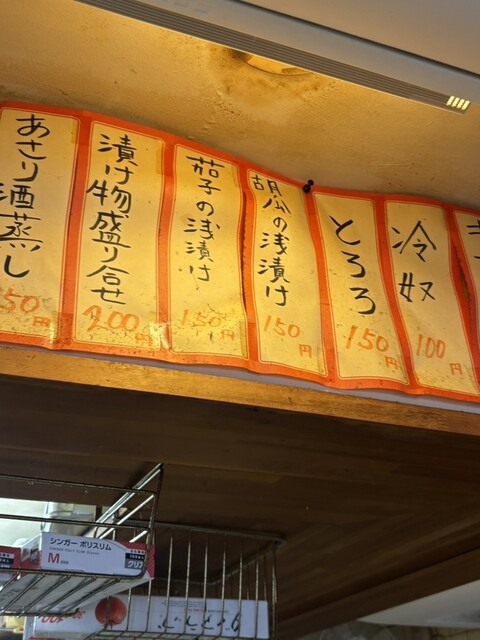 あさり酒蒸し
50円
漬け物盛り合せ
200円
茄子の浅漬け
150円
胡瓜の浅漬け
150円
とろろ
150円
冷奴
100円
シンガー ポリスリム
M